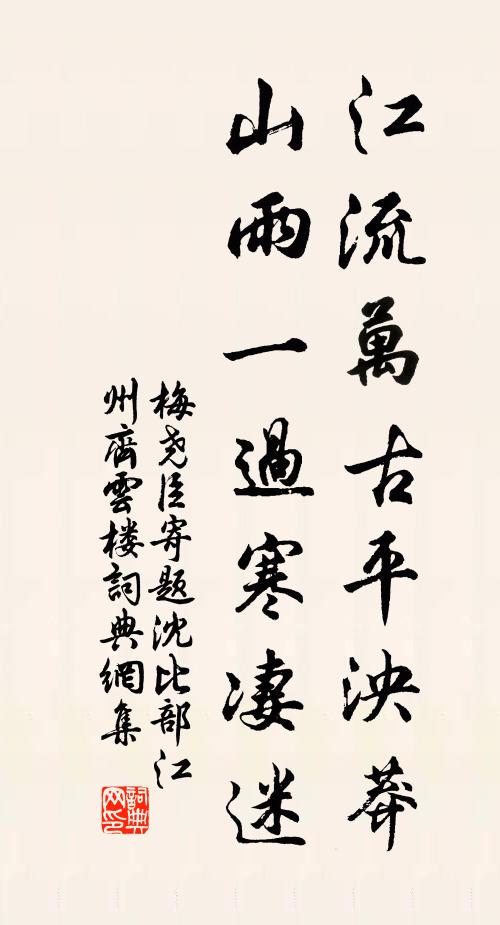 江流萬古平泱莽
山雨一過寒淒迷
梅尧臣寄题沈比部江
州齊雲楼詞典網集
詞典网印